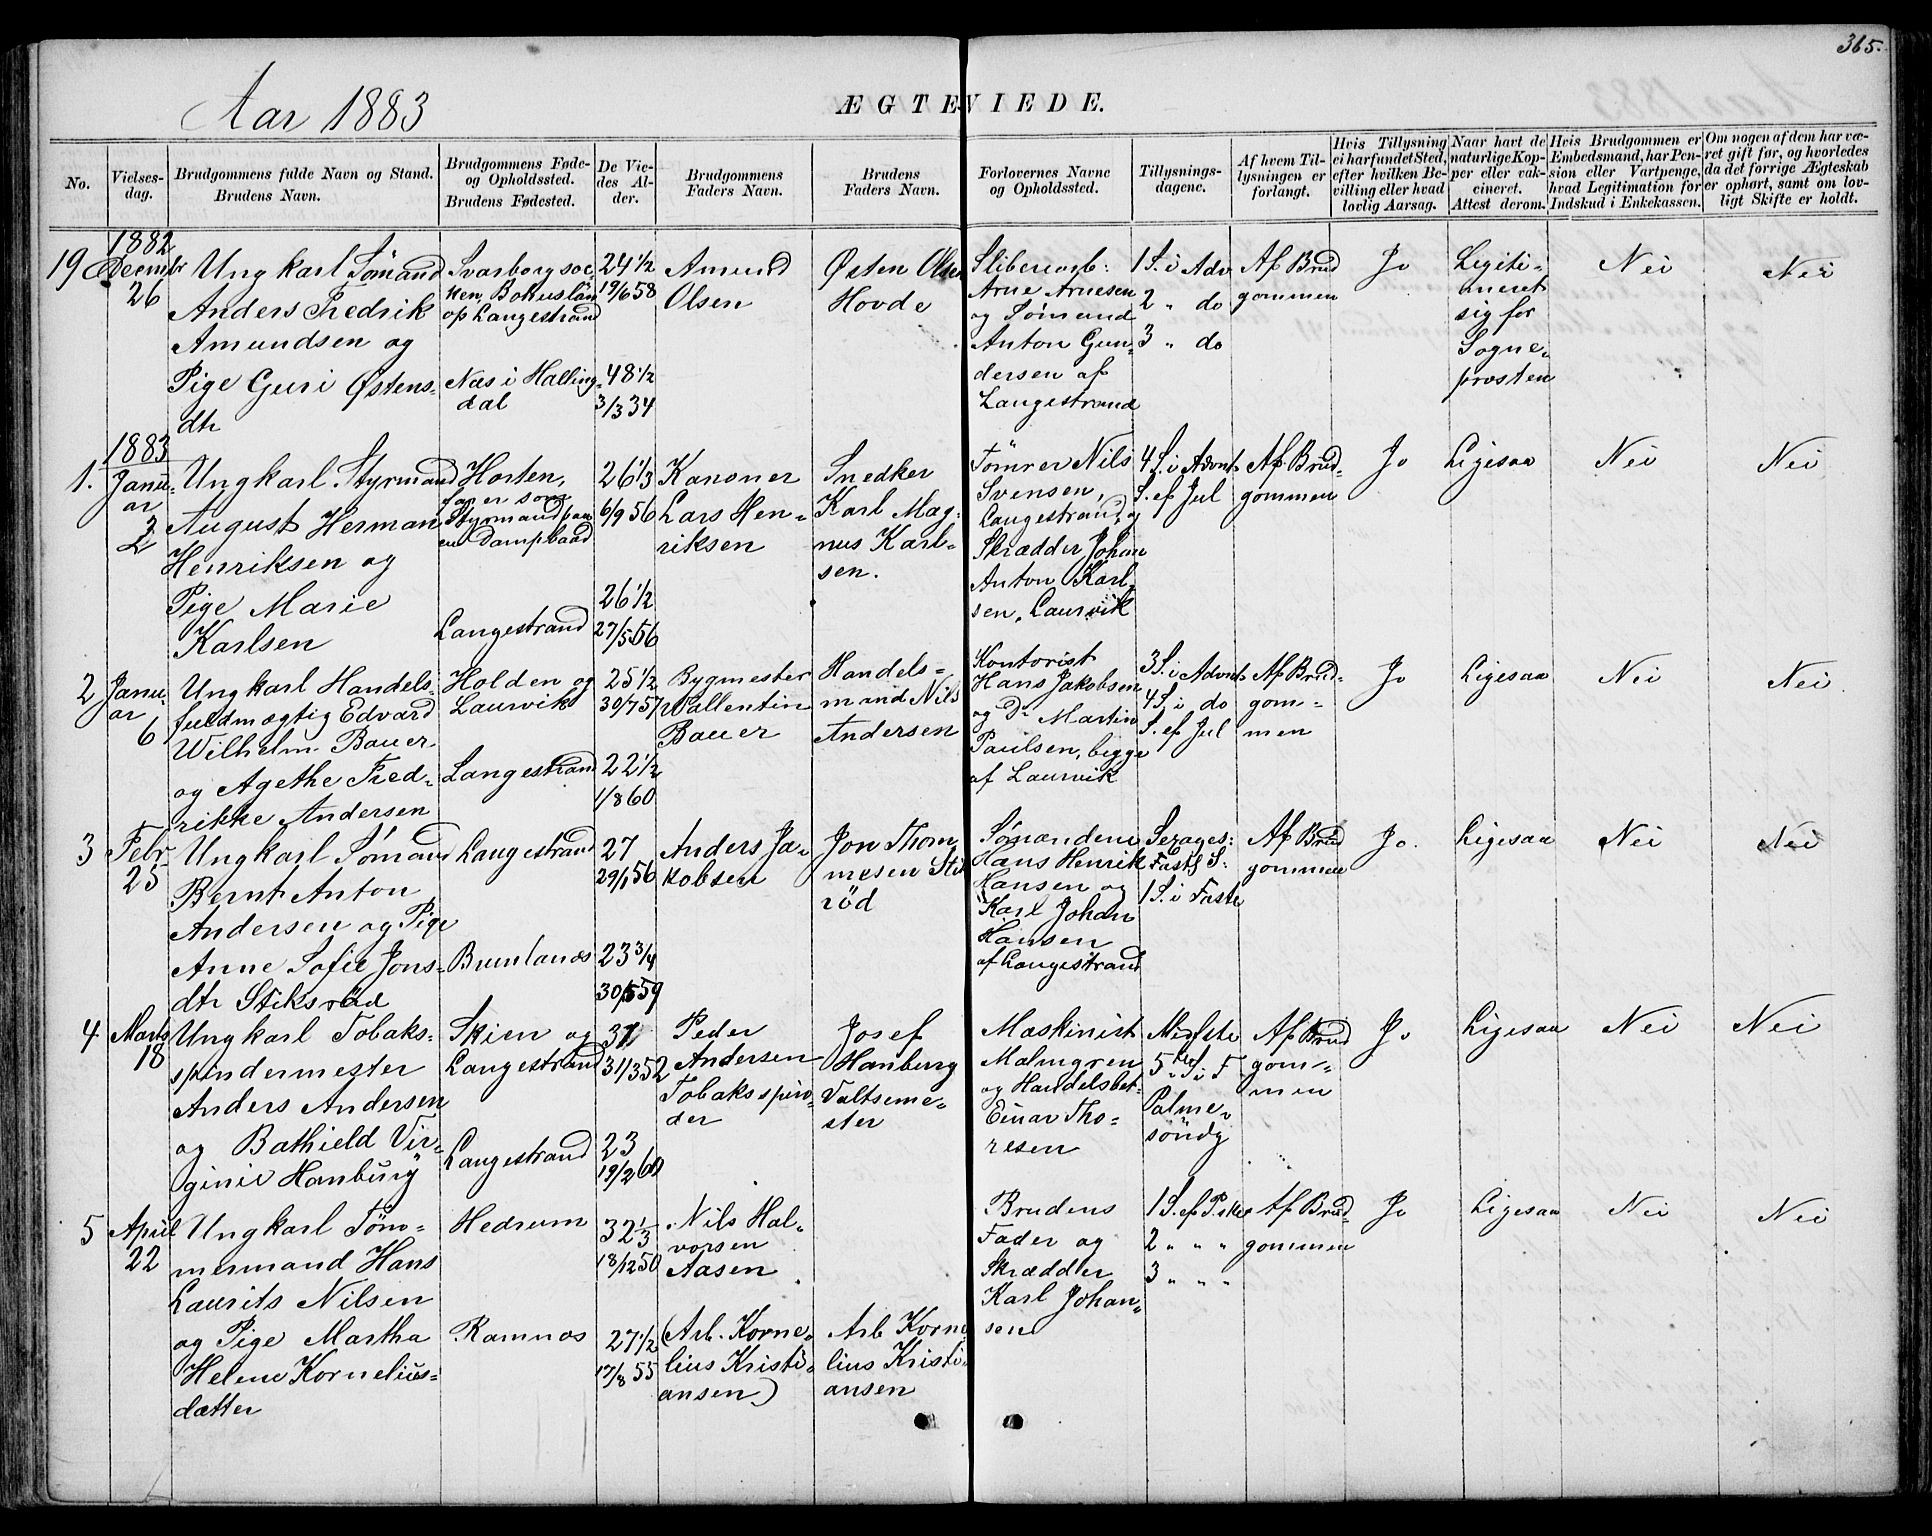 365.
Aar 1883
ÆGTEVIEDE.
No.
Vielses-
dag.
Brudgommens fulde Navn og Stand.
Brudens Navn.
Brudgommens Føde-
og Opholdssted.
Brudens Fødested.
De Vie-
des Al-
der.
Brudgommens
Faders Navn.
Brudens
Faders Navn.
Forlovernes Navne
og Opholdssted.
Tillysnings-
dagene.
Af hvem Til-
lysningen er
forlangt.
Hvis Tillysning
ei har fundet Sted,
efter hvilken Be-
villing eller hvad
lovlig Aarsag.
Naar havt de
naturlige Kop-
per eller vak-
cineret.
Attest derom.
Hvis Brudgommen er
Embedsmand, har Pen-
sion eller Vartpenge,
hvad Legitimation for
Indskud i Enkekassen.
Om nogen af dem har væ-
ret gift før, og hvorledes
da det forrige Ægteskab
er ophørt, samt om lov-
ligt Skifte er holdt.
19
1882
Decembr
26
Ungkarl Sømand
Anders Fredrik
Amundsen og
Pige Guri Østens-
dtr
Svarborg soc-
ken, Bohuslän
op Langestrand
Næs i Halling-
dal
24 1/2
19/6 58
48 1/2
3/3 34
Amund
Olsen
Østen Olsen
Hovde
Slibereiarb:
Arne Arnesen
og Sømand
Anton Gun-
dersen af
Langestrand
1 S. i Adv.
2 " do
3 " do
Af Brud
gommen
Jo
Legiti-
meret
sig for
Sogne-
prosten
Nei
Nei
1883
1.
Janu-
ar
2
Ungkarl Styrmand
August Herman
Henriksen og
Pige Marie
Karlsen
Horten,
farer som
Styrmand paa
en Dampbaad
Langestrand
26 1/3
6/9 56
26 1/2
27/5 56
Kanoner
Lars Hen-
riksen
Snedker
Karl Mag-
nus Karl-
sen.
Tømrer Nils
Svensen,
Langestrand, og
Skrædder Johan
Anton Karl-
sen, Laurvik
4 S. i Advnt
S. ef Jul
Af Brud-
gommen
Jo
Ligesaa
Nei
Nei
2
Janu-
ar
6
Ungkarl Handels-
fuldmægtig Edvard
Wilhelm Bauer
og Agethe Fred-
rikke Andersen
Holden og
Laurvik
Langestrand
25 1/2
30/7 57
22 1/2
1/8 60
Bygmester
Vallentin
Bauer
Handels-
mand Nils
Andersen
Kontorist
Hans Jakobsen
og Do Martin
Paulsen, begge
af Laurvik
3 S. i Advnt
4 S. i do
S. ef Jul
Af Brud-
gom-
men
Jo
Ligesaa
Nei
Nei.
3
Febr
25
Ungkarl Sømand
Bernt Anton
Andersen og Pige
Anne Sofie Jons-
dtr Stiksrød
Langestrand
Brunlanæs
27
29/1 56
23 3/4
30/5 59
Anders Ja-
kobsen
Jon Thom
mesen Stik
rød
Sømandene
Hans Henrik
Hansen og
Karl Johan
Hansen
af Langestrand
Sexages:
Fastl S.
1 S. i Faste
Af Brud
gommen
Jo.
Ligesaa
Nei
Nei
4
Marts
18
Ungkarl Tobaks-
spindermester
Anders Andersen
og Bathield Vir-
ginie Hamburg
Skien og
Langestrand
Langestrand
31
31/3 52
23
19/2 60
Peder
Andersen
Tobaksspin-
der
Josef
Hamburg
Valtseme-
ster
Maskinist
Malmgren
og Handelsbet-
Einar Tho-
resen
Midfste
5te S. i F
Palme-
söndg
Af Brud
gom-
men
Jo
Ligesaa
Nei
Nei
5
April
22
Ungkarl Töm-
mermand Hans
Laurits Nilsen
og Pige Martha
Helene Kornelius-
datter
Hedrum
Ramnæs
32 1/3
18/12 50
27 1/2
17/8 55
Nils Hal-
vorsen
Aasen
(Arb. Korne-
lius Kristi-
ansen)
Arb Korne
lius Kristi-
ansen
Brudens
Fader og
Skrædder
Karl Johan-
sen
1 S. ef Påske
2 " " "
3 " " "
Af Brud-
gommen
Jo
Ligesaa
Nei
Nei